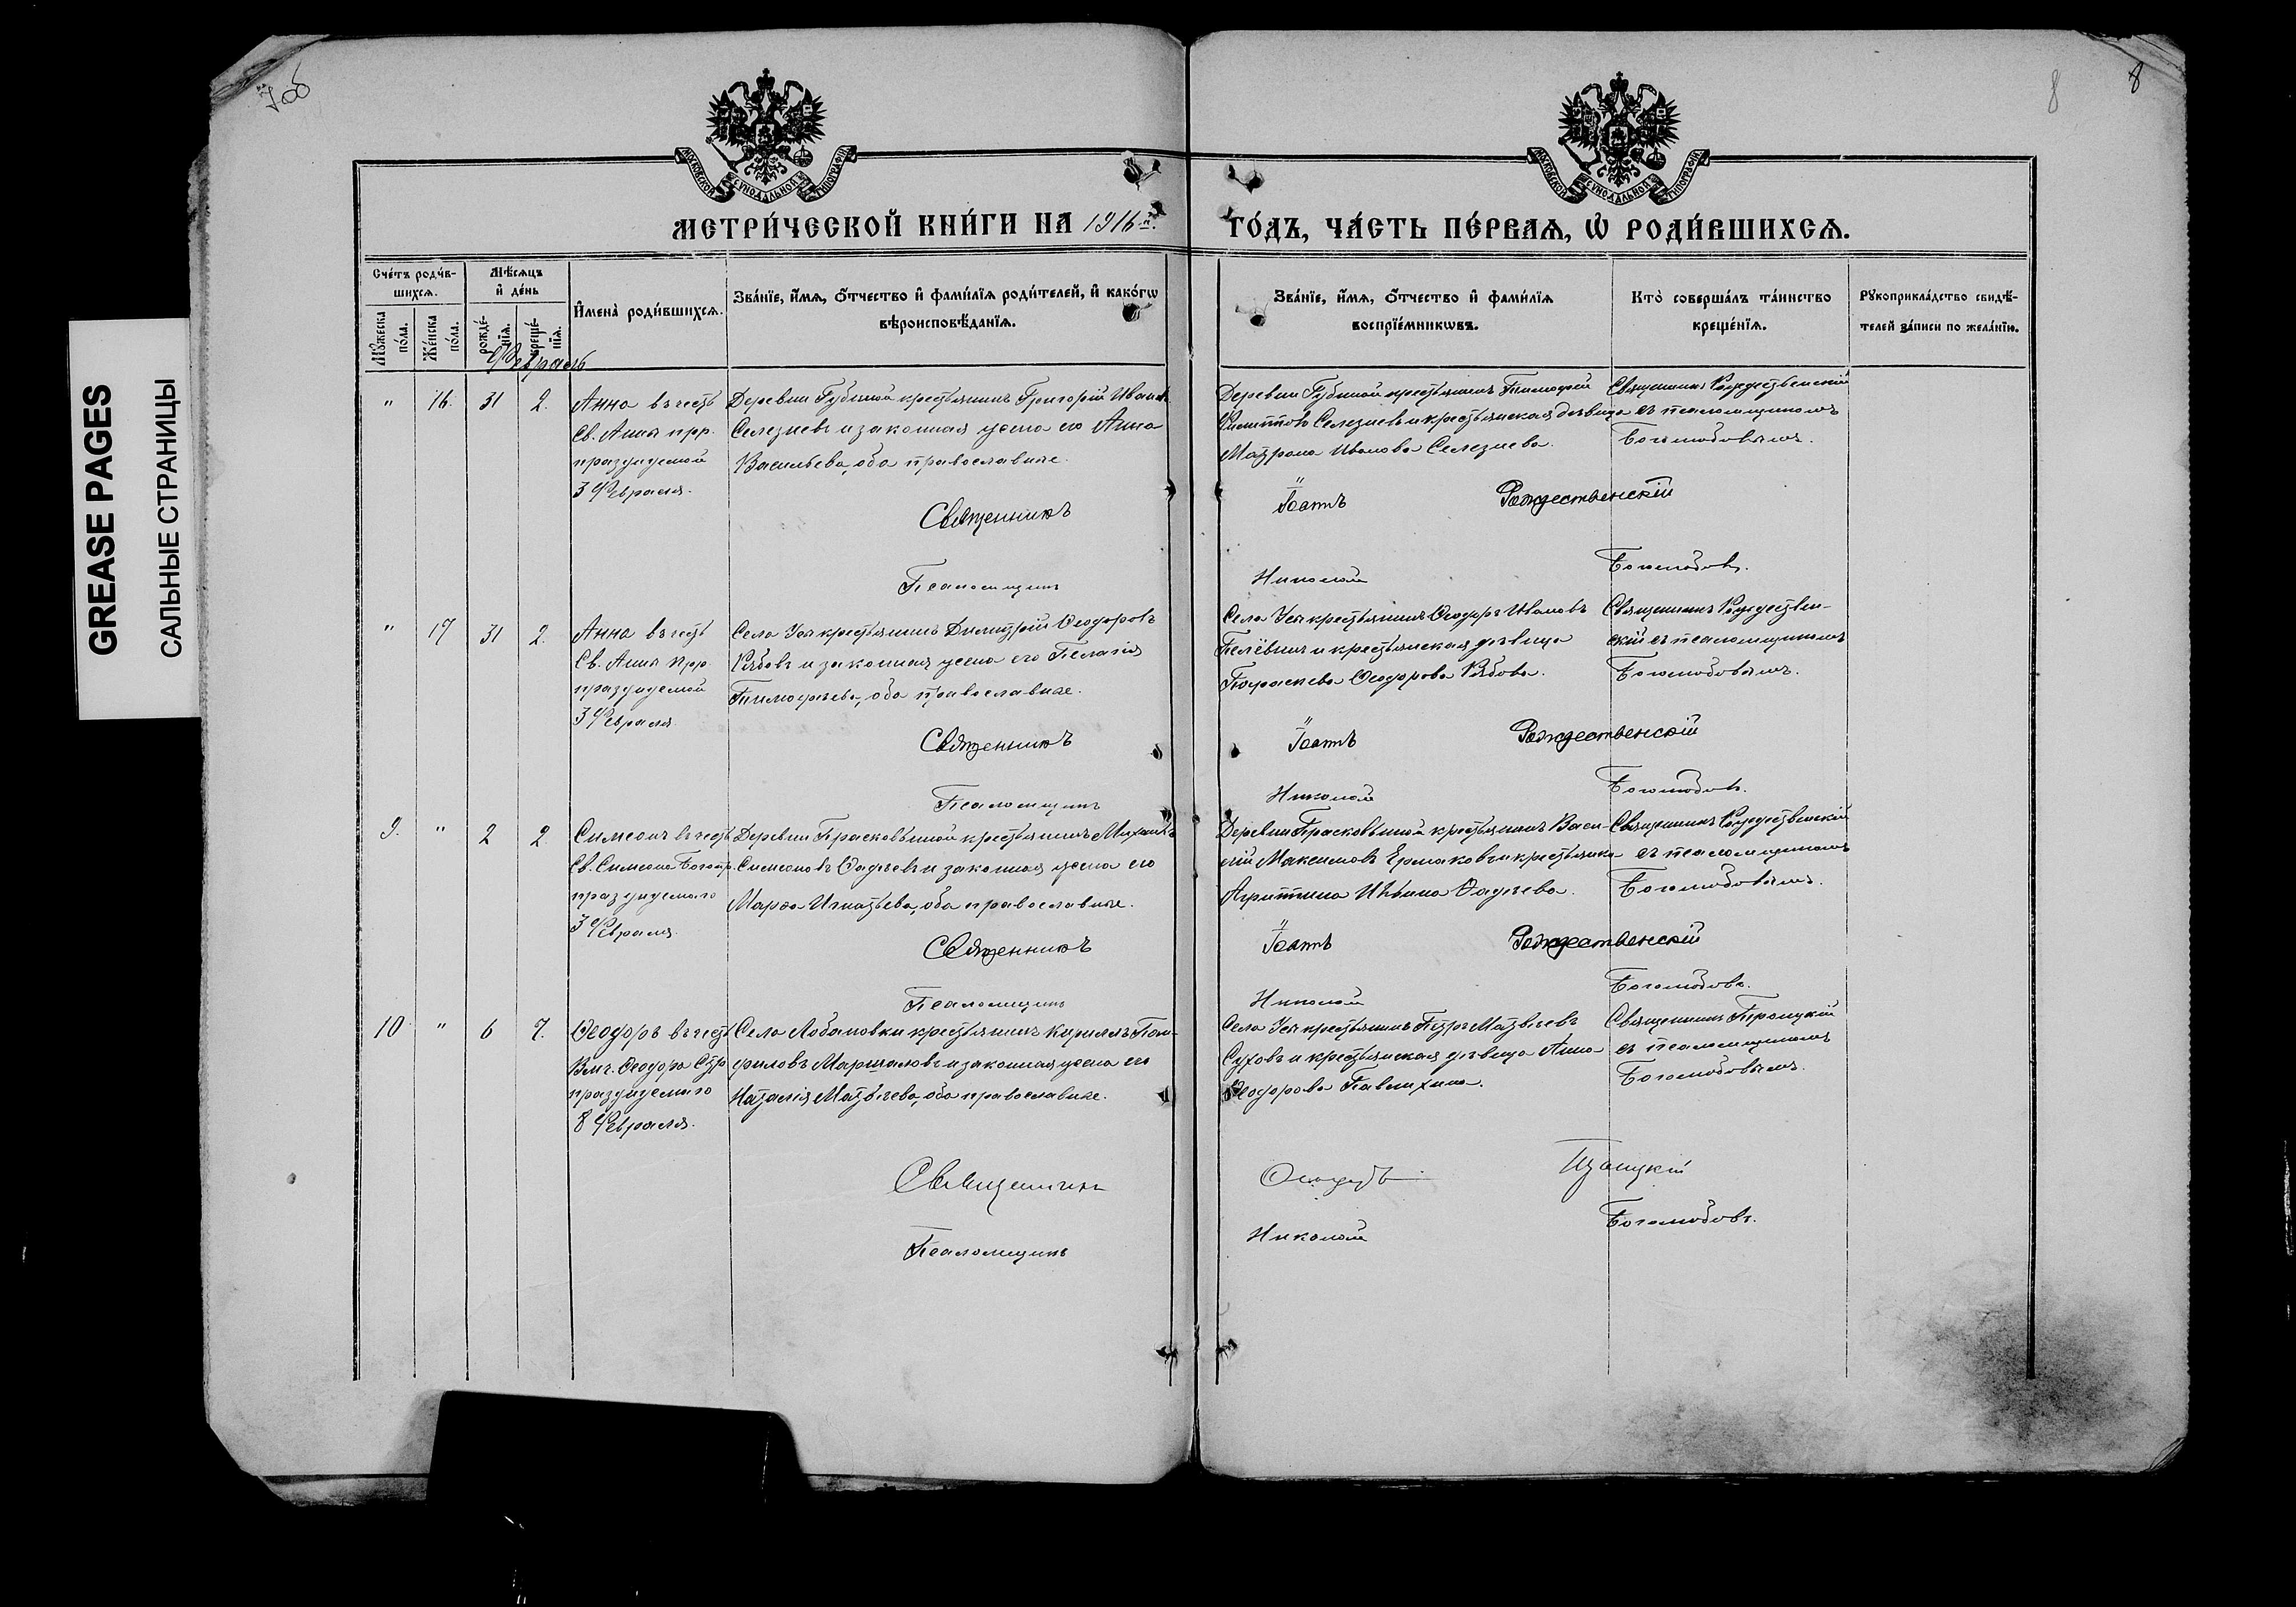 8
8
GREASE PAGES
САЛЬНЫЕ СТРАНИЦЫ
МОСКОВСКОЙ СУНОДАЛЬНОЙ ТИПОГРАФІИ
МОСКОВСКОЙ СУНОДАЛЬНОЙ ТИПОГРАФІИ
МЕТРИ́ЧЕСКОЙ КНИ́ГИ НА 1916й
ГО́ДЪ, ЧА́СТЬ ПЕ́РВАѦ, Ѡ РОДИ́ВШИХСѦ.
Сче́тъ роди́в-
шихсѧ.
Мѣ́сѧцъ
и҆ де́нь
И҆мена̀ роди́вшихсѧ.
Зва́нїе, и҆́мѧ, ѻ҆́тчество и҆ фами́лїѧ роди́телей, и҆ како́гѡ
вѣроисповѣ́данїѧ.
Зва́нїе, и҆́мѧ, ѻ҆́тчество и҆ фами́лїѧ
воспрїе́мникѡвъ.
Кто̀ соверша́лъ та́инство
креще́нїѧ.
Рꙋкоприкла́дство свидѣ́-
телей за́писи по жела́нїю.
Мꙋ́жеска
по́ла.
Же́нска
по́ла.
рожде́-
нїѧ.
креще́-
нїѧ.
Февраль
" 16. 31 2.
Анна въ честь
Св. Анны прр.
празднуемой
3 Февраля.
Деревни Губиной крестьянинъ Григорій Иванов
Селезневъ и законная жена его Анна
Васильева, оба православные.
Деревни Губиной крестьянинъ Тимофей
Селезневъ и крестьянская дѣвица
Матрона Иванова Селезнева.
Священникъ Рождественскій
съ псаломщикомъ
Боголюбовымъ.
Священникъ Іоаннъ Рождественскій
Псаломщикъ Николай Боголюбовъ.
" 17 31 2.
Анна въ честь
Св. Анны прр.
празднуемой
3 Февраля
Села Уст крестьянинъ Димитрій Ѳеодоровъ
Рябовъ и законная жена его Пелагія
Тимофеева, оба православные.
Села Уст крестьянинъ Ѳеодоръ Ивановъ
и крестьянская дѣвица
Параскева Ѳеодорова Рябова.
Священникъ Рождествен-
скій съ псаломщикомъ
Боголюбовымъ.
Священникъ Іоаннъ Рождественскій
Псаломщикъ Николай Боголюбовъ.
9. " 2 2
Симеонъ въ честь
Св. Симеона Богопр.
празднуемаго
3 Февраля
Деревни Прасковьиной крестьянинъ Михаилъ
Симеоновъ Ѳадѣевъ и законная жена его
Марѳа Игнатьева, оба православные.
Деревни Прасковьиной крестьянинъ Васи-
лій Максимовъ Ермаковъ и крестьянка
Агриппина Ильина Ѳадѣева.
Священникъ Рождественскій
съ псаломщикомъ
Боголюбовымъ.
Священникъ Іоаннъ Рождественскій
Псаломщикъ Николай Боголюбовъ.
10 " 6 7.
Ѳеодоръ въ честь
Вмч. Ѳеодора Стр
празднуемаго
8 Февраля.
Села Лобановки крестьянинъ Кириллъ Пан-
филовъ Маршаловъ и законная жена его
Наталія Матвѣева, оба православные.
Села Уст крестьянинъ Петръ Матвѣевъ
Суховъ и крестьянская дѣвица Анна
Ѳеодорова Павлихина.
Священникъ Троицкій
съ псаломщикомъ
Боголюбовымъ.
Священникъ Ѳеодоръ Троицкій
Псаломщикъ Николай Боголюбовъ.